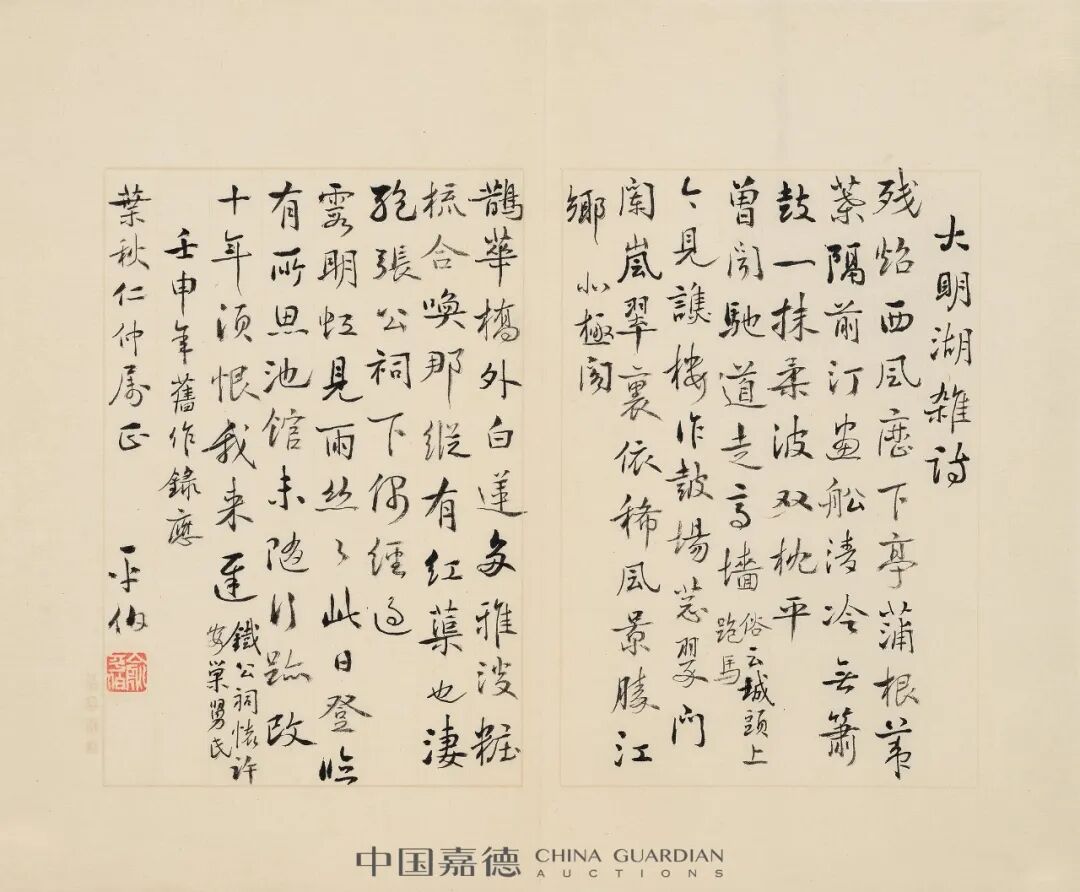 大明湖雜诗
残炤西风歷下亭蒲根苇
葉隔前汀畫船凄冷无簫
鼓一抹柔波双枕平
曾闻馳道走高墻
俗云城頭上
跑馬
今見譙樓作鼓場 门
闌嵐翠裏依稀风景勝江
鄉
北極阁
鵲華橋外白蓮多雅淡粧
梳合唤那縱有红蕖也凄
绝張公祠下偶经过
霽明虹見雨丝々此日登临
有所思池馆未随行跡改
十年须恨我来遲
鐵公祠懷許
安巢舅氏
壬申年舊作錄應
葉秋仁仲属正 平伯
中国嘉德 CHINA GUARDIAN
AUCTIONS